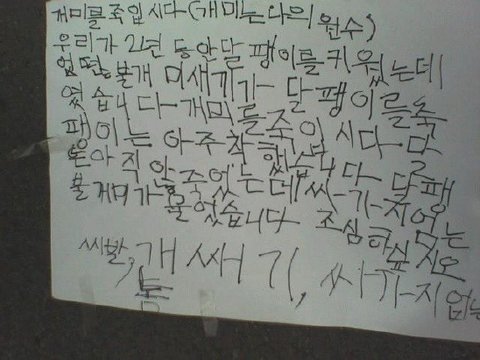 거미를 죽입시다(개미는 나의 원수)
우리가 2년 동안 달팽이를 키웠는데
엄떤 불개미새기가 달팽이를 죽
였습니다 개미를 죽이시다. 다
팽이는 아주 착했습니다 달팽
아직 안 죽었는데 싸가지 없는
불게미가 물었습니다 조심하싶시오
씨발, 개쌔기, 싸가지 없는
놈